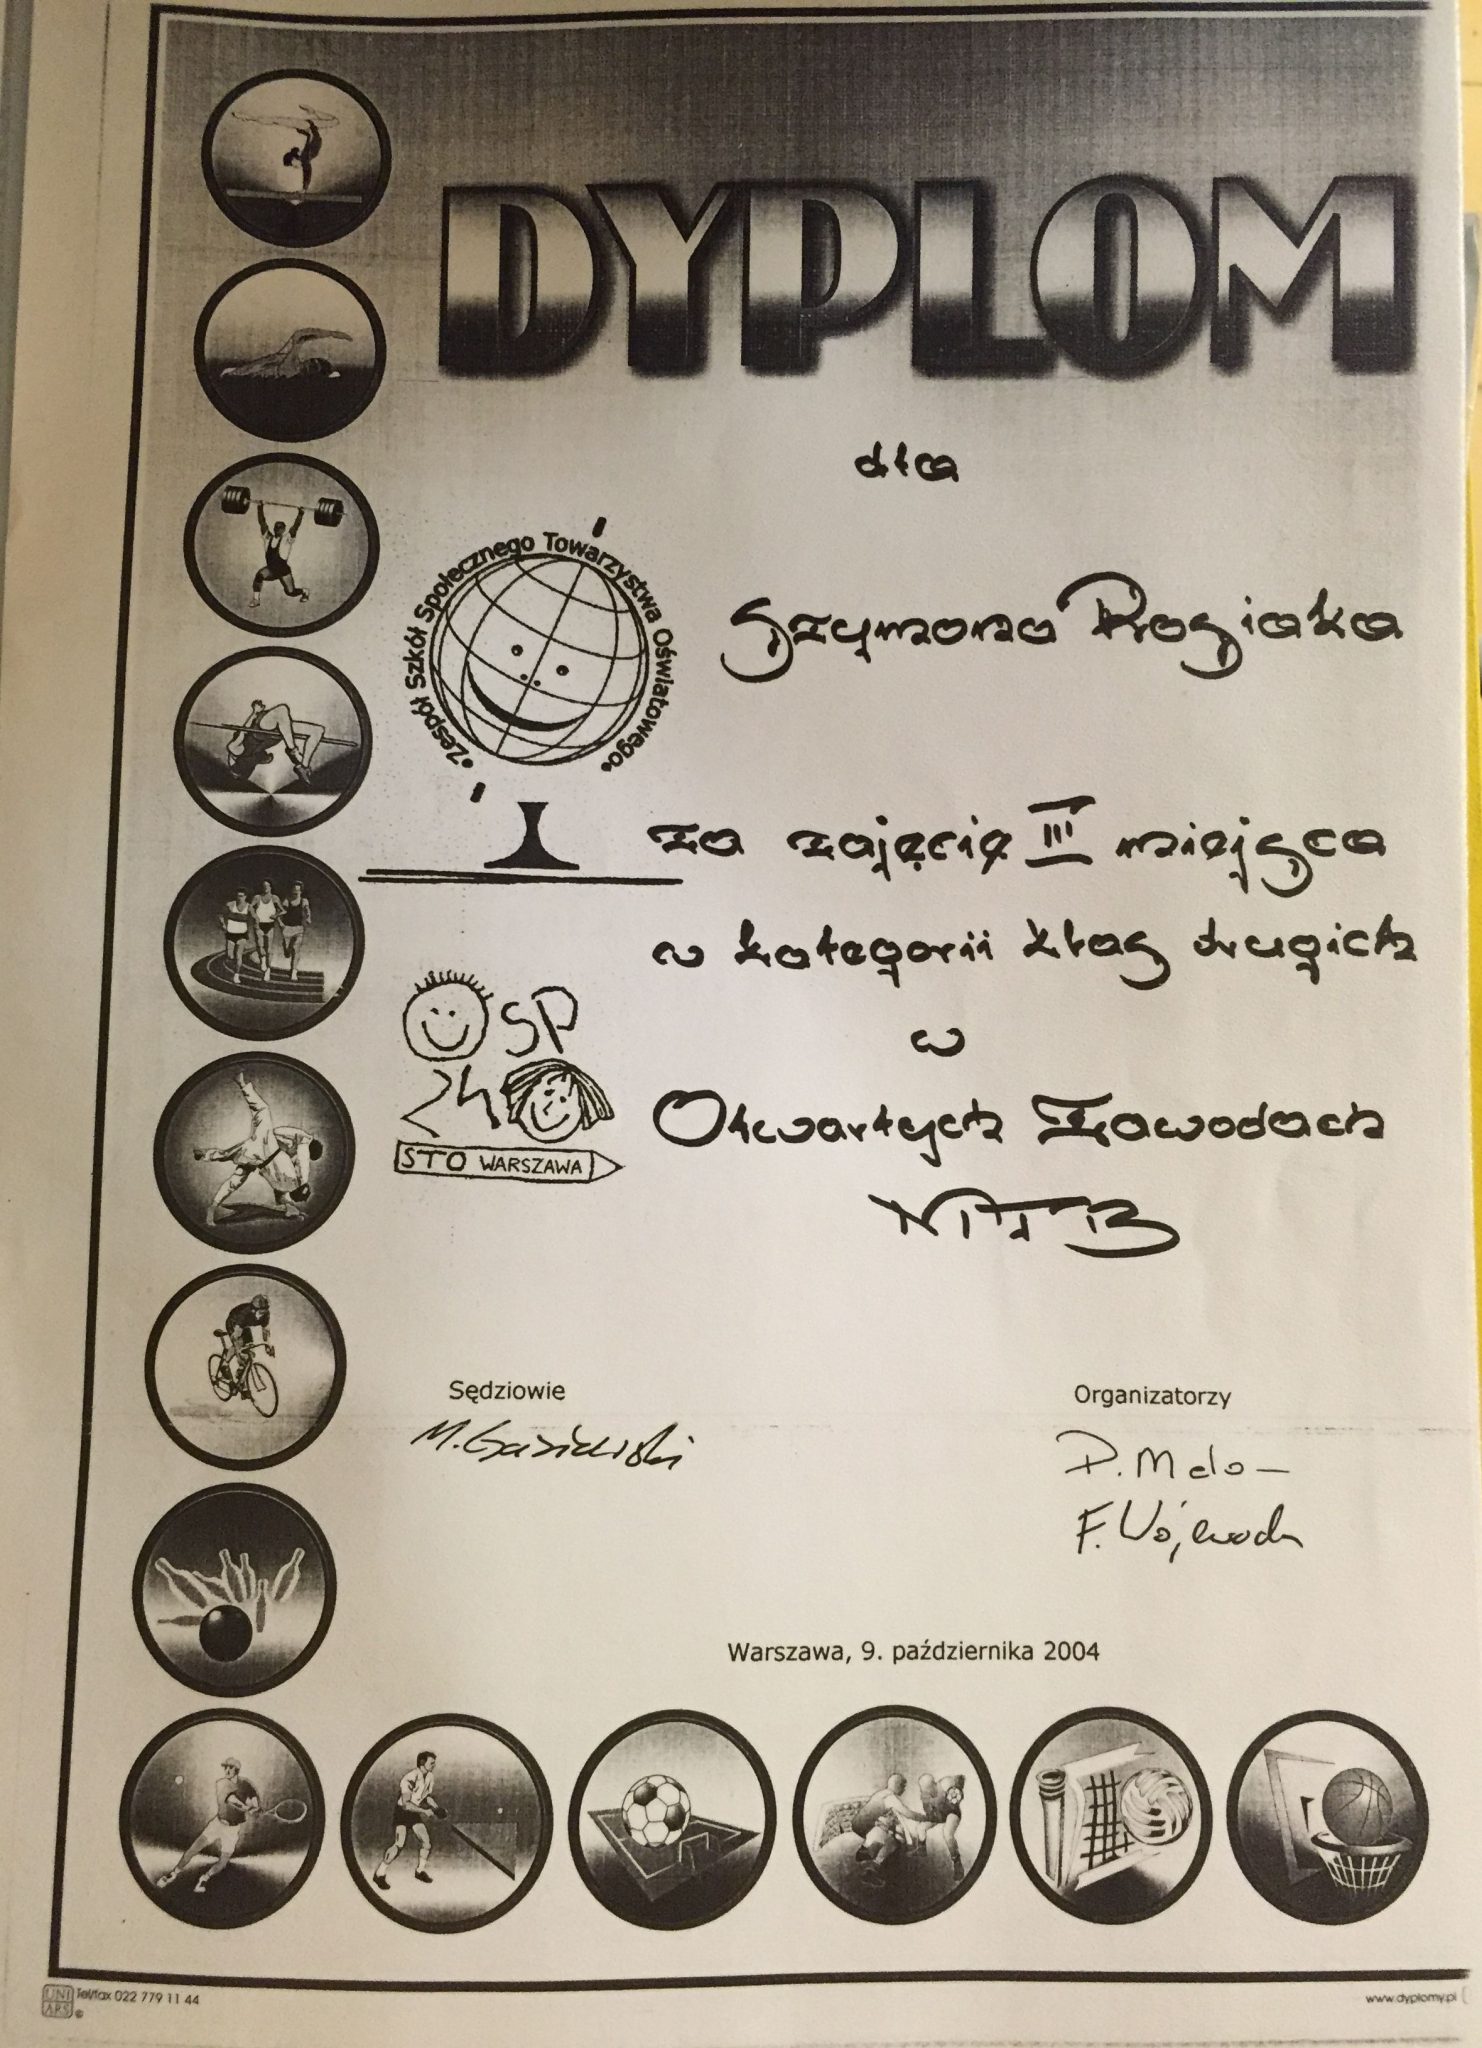 DYPLOM
dla
•Zespół Szkół Społecznego Towarzystwa Oświatowego•
Szymona Rosiaka
za zajęcie III miejsca
w kategorii klas drugich
w
Otwartych Zawodach
SP
24
STO WARSZAWA
Sędziowie
Organizatorzy
Warszawa, 9. października 2004
UNI
ARS
Tel/fax 022 779 11 44
www.dyplomy.pl